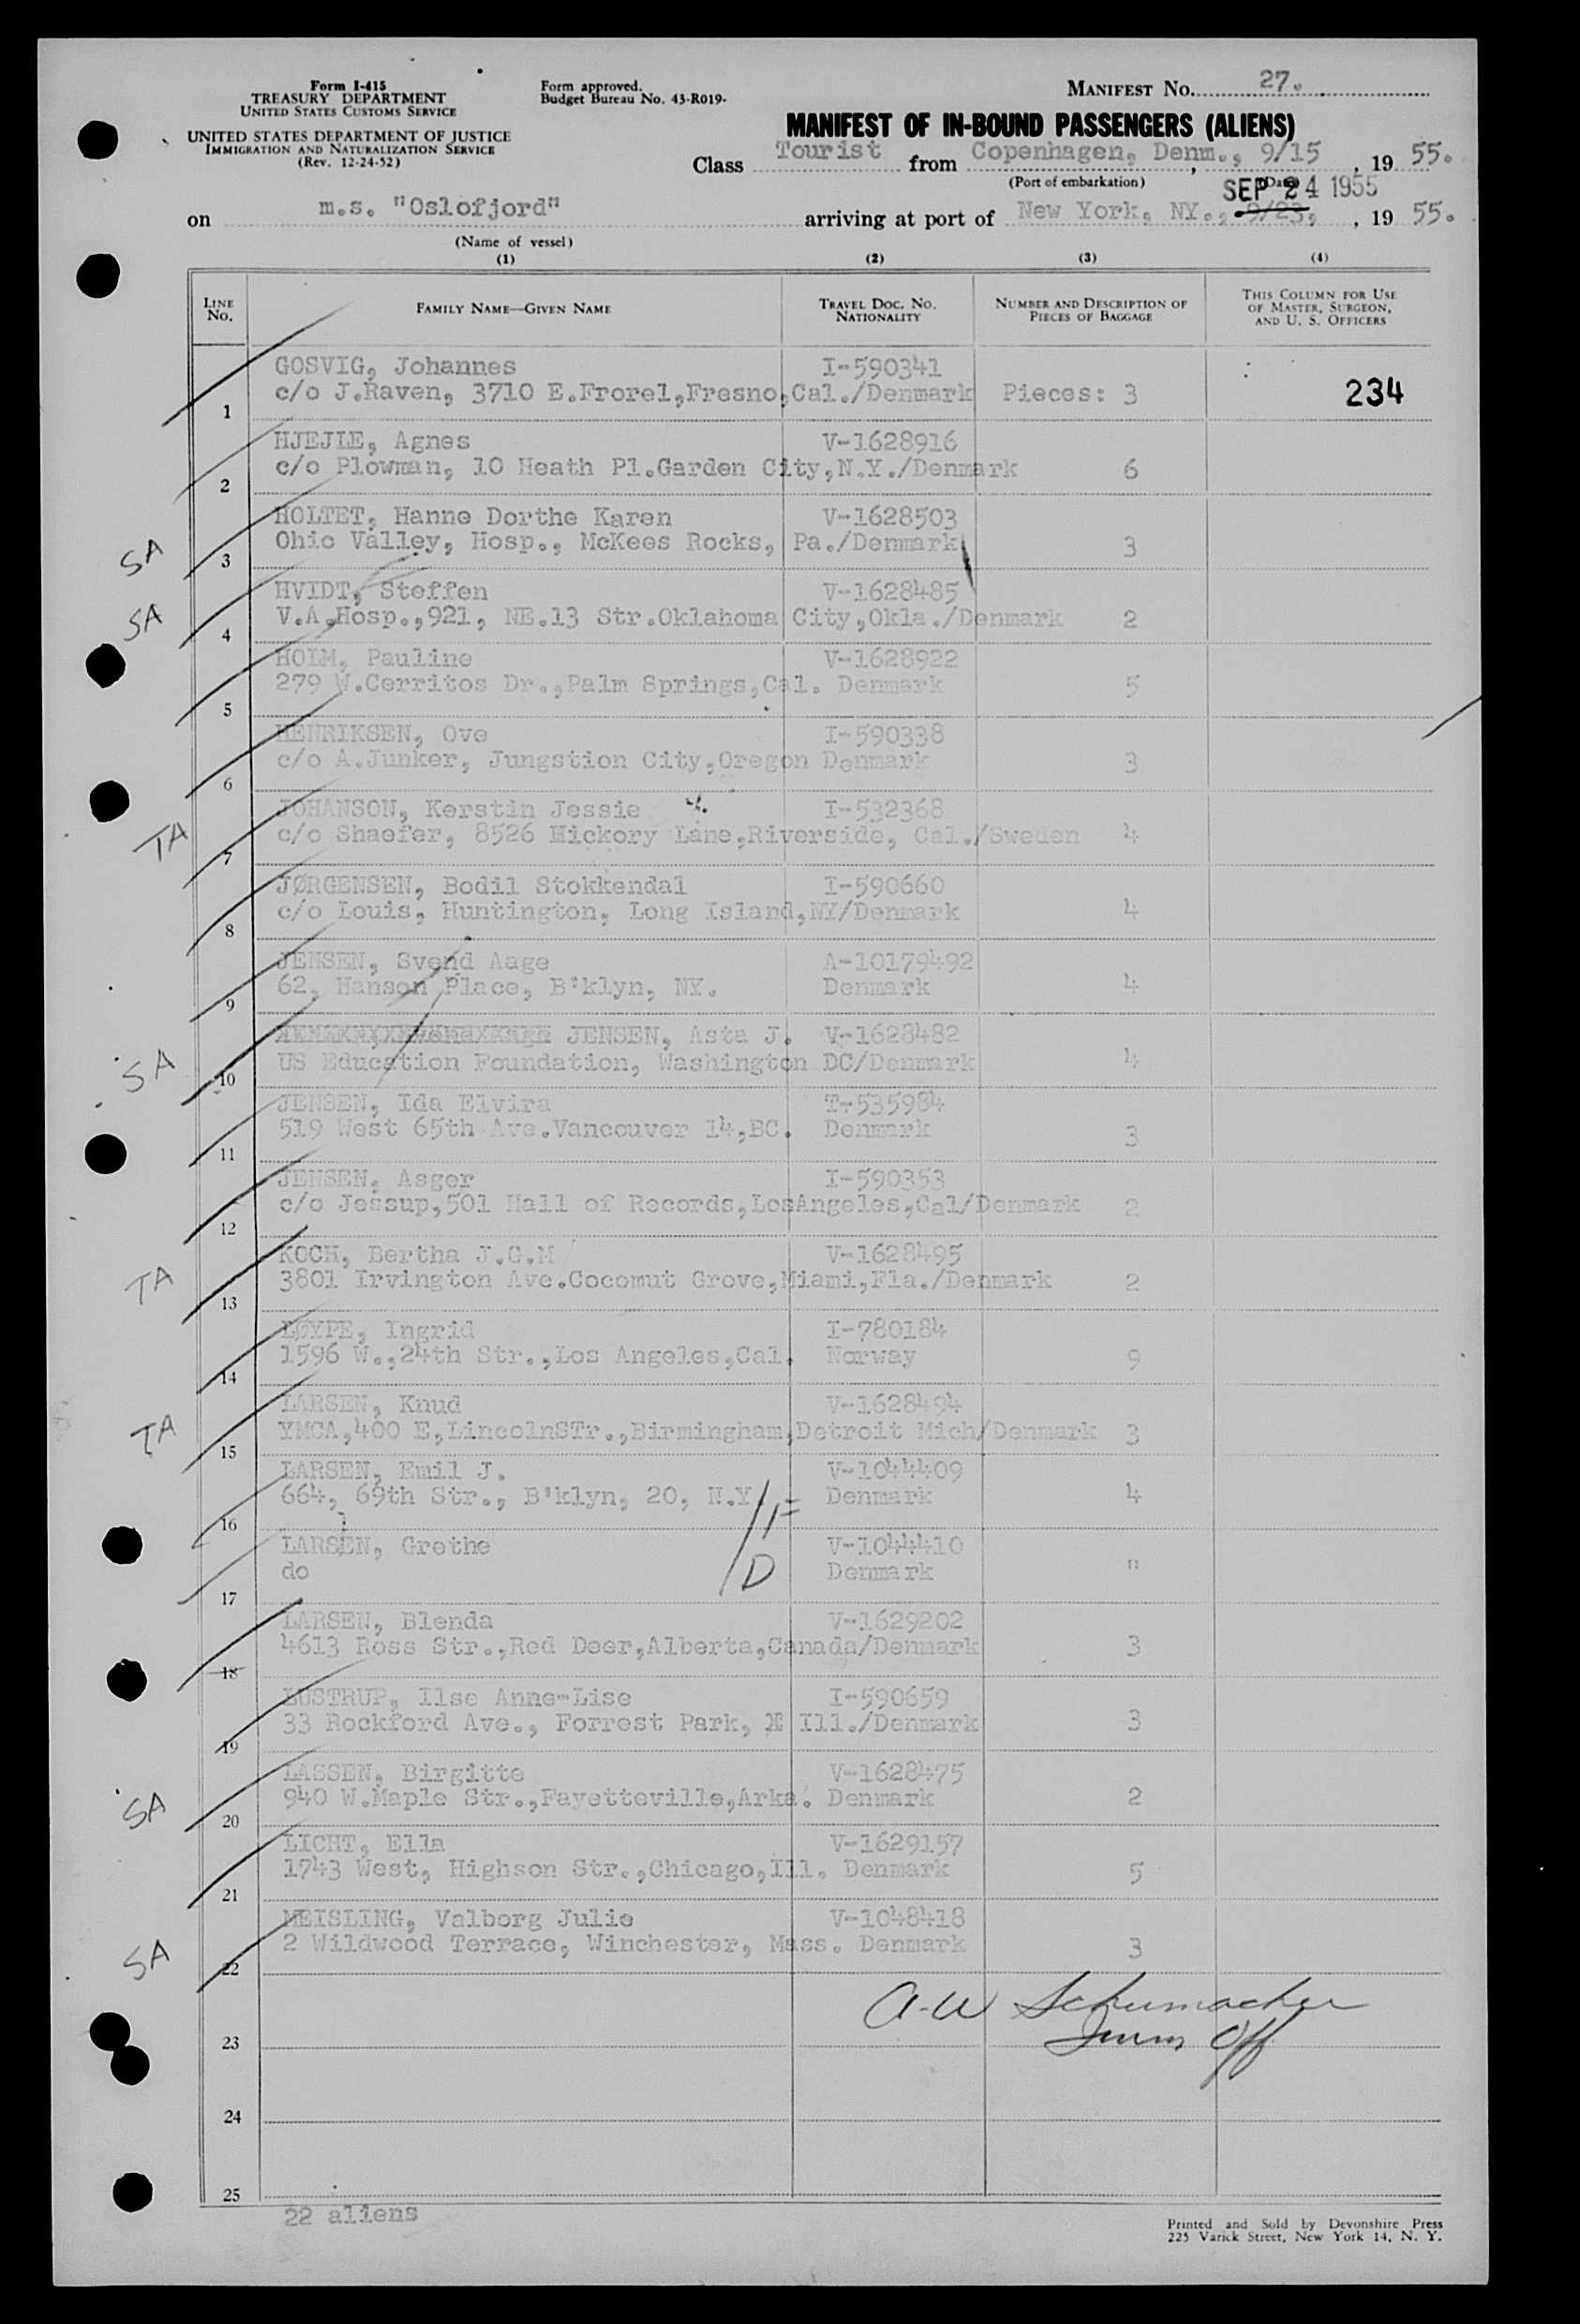 Form I-415
TREASURY DEPARTMENT
UNITED STATES CUSTOMS SERVICE
UNITED STATES DEPARTMENT OF JUSTICE
IMMIGRATION AND NATURALIZATION SERVICE
(Rev. 12-24-52)
Form approved.
Budget Bureau No. 43-R019-
MANIFEST No. 27.
MANIFEST OF IN-BOUND PASSENGERS (ALIENS)
Class Tourist from Copenhagen, Denm., 9/15, 19 55.
(Port of embarkation) (Date)
SEP 24 1955
on m.s. "Oslofjord" arriving at port of New York, NY., 9/23, , 19 55.
(Name of vessel)
(1) (2) (3) (4)
LINE No. FAMILY NAME—GIVEN NAME TRAVEL DOC. No. NATIONALITY NUMBER AND DESCRIPTION OF PIECES OF BAGGAGE THIS COLUMN FOR USE OF MASTER, SURGEON, AND U. S. OFFICERS
GOSVIG, Johannes I-590341
1 c/o J.Raven, 3710 E.Frorel,Fresno,Cal./Denmark Pieces: 3 234
HJEJLE, Agnes V-1628916
2 c/o Plowman, 10 Heath Pl.Garden City,N.Y./Denmark 6
HOLTET, Hanne Dorthe Karen V-1628503
SA 3 Ohio Valley, Hosp., McKees Rocks, Pa./Denmark 3
HVIDT, Steffen V-1628485
SA 4 V.A.Hosp.,921, NE.13 Str.Oklahoma City,Okla./Denmark 2
HOLM, Pauline V-1628922
5 279 W.Cerritos Dr.,Palm Springs,Cal. Denmark 5
HENRIKSEN, Ove I-590338
6 c/o A.Junker, Jungstion City,Oregon Denmark 3
JOHANSON, Kerstin Jessie I-532368
TA 7 c/o Shaefer, 8526 Hickory Lane,Riverside, Cal./Sweden 4
JØRGENSEN, Bodil Stokkendal I-590660
8 c/o Louis, Huntington, Long Island,NY/Denmark 4
JENSEN, Svend Aage A-10179492
9 62, Hanson Place, B'klyn, NY. Denmark 4
JENSEN, Asta J. V-1628482
SA 10 US Education Foundation, Washington DC/Denmark 4
JENSEN, Ida Elvira T-535984
11 519 West 65th Ave.Vancouver 14,BC. Denmark 3
JENSEN, Asger I-590353
12 c/o Jessup,501 Hall of Records,LosAngeles,Cal/Denmark 2
KOCH, Bertha J.G.M V-1628495
TA 13 3801 Irvington Ave.Cocomut Grove,Miami,Fla./Denmark 2
LØYPE, Ingrid I-780184
14 1596 W.,24th Str.,Los Angeles,Cal. Norway 9
LARSEN, Knud V-1628494
TA 15 YMCA,400 E,LincolnSTr.,Birmingham,Detroit Mich/Denmark 3
LARSEN, Emil J. V-1044409
16 664, 69th Str., B'klyn, 20, N.Y. Denmark 4
LARSEN, Grethe V-1044410
17 do D Denmark "
LARSEN, Blenda V-1629202
18 4613 Ross Str.,Red Deer,Alberta,Canada/Denmark 3
LUSTRUP, Ilse Anne-Lise I-590659
19 33 Rockford Ave., Forrest Park, Ill./Denmark 3
LASSEN, Birgitte V-1628475
SA 20 940 W.Maple Str.,Fayetteville,Arka. Denmark 2
LICHT, Ella V-1629157
21 1743 West, Highson Str.,Chicago,Ill. Denmark 5
MEISLING, Valborg Julie V-1048418
SA 22 2 Wildwood Terrace, Winchester, Mass. Denmark 3
A-W Schumacher
23 Imm Off
24
25
22 aliens
Printed and Sold by Devonshire Press
225 Varick Street, New York 14, N. Y.